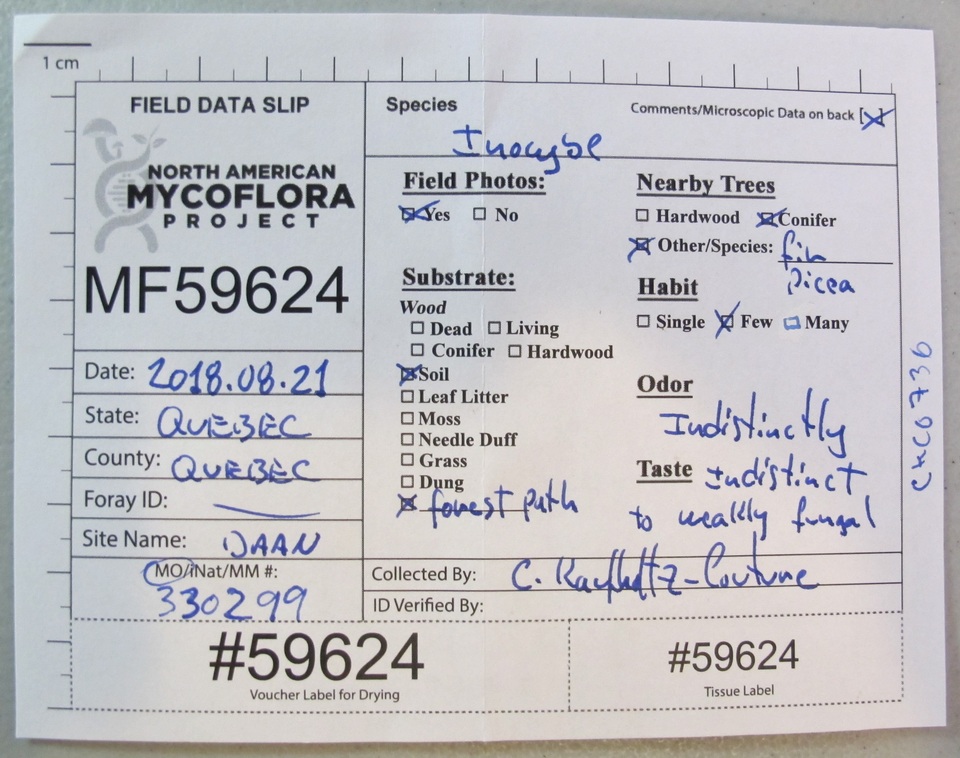 1 cm
FIELD DATA SLIP
NORTH AMERICAN
MYCOFLORA
PROJECT
MF59624
Date: 2018.08.21
State: QUEBEC
County: QUEBEC
Foray ID: —
Site Name: DAAN
MO/iNat/MM #:
330299
Species
Inocybe
Comments/Microscopic Data on back [X]
Field Photos:
☒ Yes ☐ No
Substrate:
Wood
☐ Dead ☐ Living
☐ Conifer ☐ Hardwood
☒ Soil
☐ Leaf Litter
☐ Moss
☐ Needle Duff
☐ Grass
☐ Dung
☒ forest path
Nearby Trees
☐ Hardwood ☒ Conifer
☒ Other/Species: fir
Picea
Habit
☐ Single ☒ Few ☐ Many
Odor
Indistinctly
Taste Indistinct
to weakly fungal
Collected By: C. Kaufholtz-Couture
ID Verified By:
#59624
Voucher Label for Drying
#59624
Tissue Label